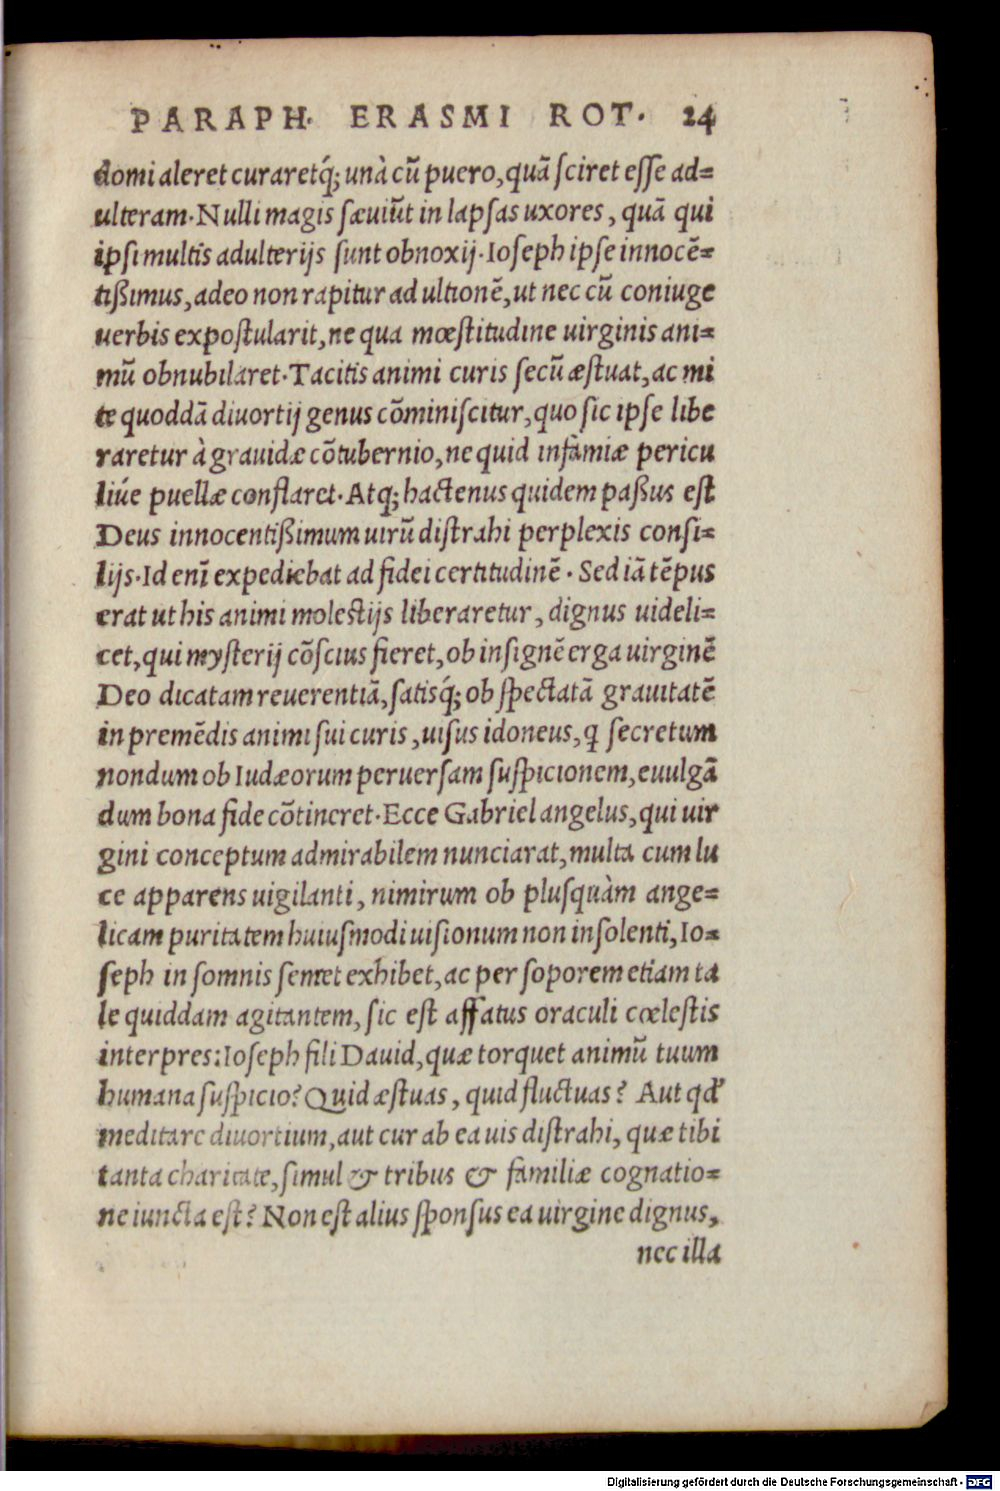 PARAPH. ERASMI ROT. 24
domi aleret curaretq́; unà cũ puero, quã sciret esse ad=
ulteram. Nulli magis sæuiũt in lapsas uxores, quã qui
ipsi multis adulterijs sunt obnoxij. Ioseph ipse innocẽ=
tißimus, adeo non rapitur ad ultionẽ, ut nec cũ coniuge
uerbis expostularit, ne qua mœstitudine uirginis ani=
mũ obnubilaret. Tacitis animi curis secũ æstuat, ac mi
te quoddã diuortij genus cõminiscitur, quo sic ipse libe
raretur à grauidæ cõtubernio, ne quid infamiæ pericu
liúe puellæ conflaret. Atq; hactenus quidem paßus est
Deus innocentißimum uirũ distrahi perplexis consi=
lijs. Id enĩ expediebat ad fidei certitudinẽ. Sed iã tẽpus
erat ut his animi molestijs liberaretur, dignus uideli=
cet, qui mysterij cõscius fieret, ob insignẽ erga uirginẽ
Deo dicatam reuerentiã, satisq́; ob spectatã grauitatẽ
in premẽdis animi sui curis, uisus idoneus, q secretum
nondum ob Iudæorum peruersam suspicionem, euulgã
dum bona fide cõtineret. Ecce Gabriel angelus, qui uir
gini conceptum admirabilem nunciarat, multa cum lu
ce apparens uigilanti, nimirum ob plusquàm ange=
licam puritatem huiusmodi uisionum non insolenti, Io=
seph in somnis semet exhibet, ac per soporem etiam ta
le quiddam agitantem, sic est affatus oraculi cœlestis
interpres: Ioseph fili Dauid, quæ torquet animũ tuum
humana suspicio? Quid æstuas, quid fluctuas? Aut qd'
meditare diuortium, aut cur ab ea uis distrahi, quæ tibi
tanta charitate, simul & tribus & familiæ cognatio=
ne iuncta est? Non est alius sponsus ea uirgine dignus,
nec illa
Digitalisierung gefördert durch die Deutsche Forschungsgemeinschaft - DFG